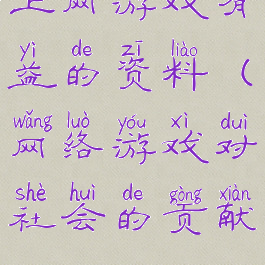 上网游戏有
yì de zī liào
益的资料(
wǎng luò yóu xì duì
网络游戏对
shè huì de gòng xiàn
社会的贡献